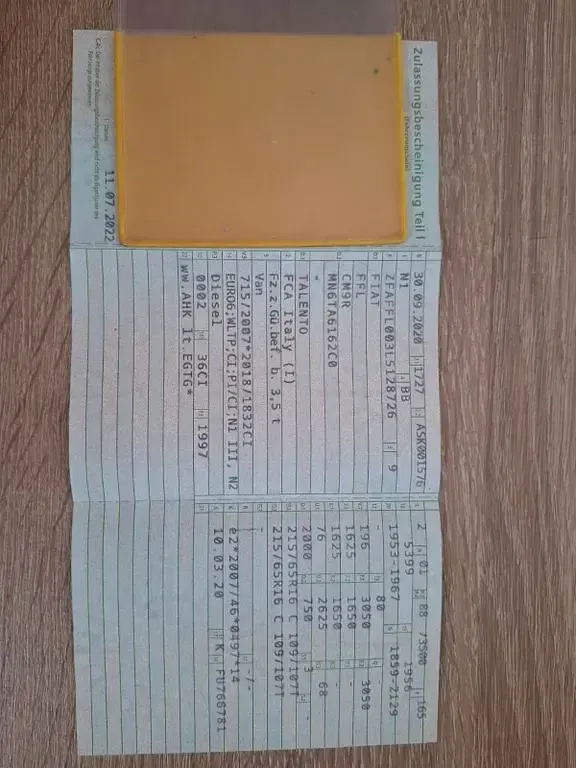 Zulassungsbescheinigung Teil I
(Fahrzeugschein)
11.07.2022
30.09.2020 1727 ASK001576
N1 BB
ZFAFFL003L5128726 9
FIAT
FFL
CM9R
MN6TA6162C0
-
TALENTO
FCA Italy (I)
Fz.z.Gü.bef. b. 3,5 t
Van
715/2007*2018/1832CI
EURO6;WLTP;CI;PI/CI;N1 III, N2
Diesel
0002 36CI 1997
ww.AHK lt.EGTG*
2 01 88 /3500 165
5399 1956
1953-1967 1859-2129
- 80 -
196 3050 3050
1625 1650 -
1625 1650 -
76 2625 68
2000 750 3 -
215/65R16 C 109/107T
215/65R16 C 109/107T
-
- -/-
e2*2007/46*0497*14
10.03.20 K FU766781